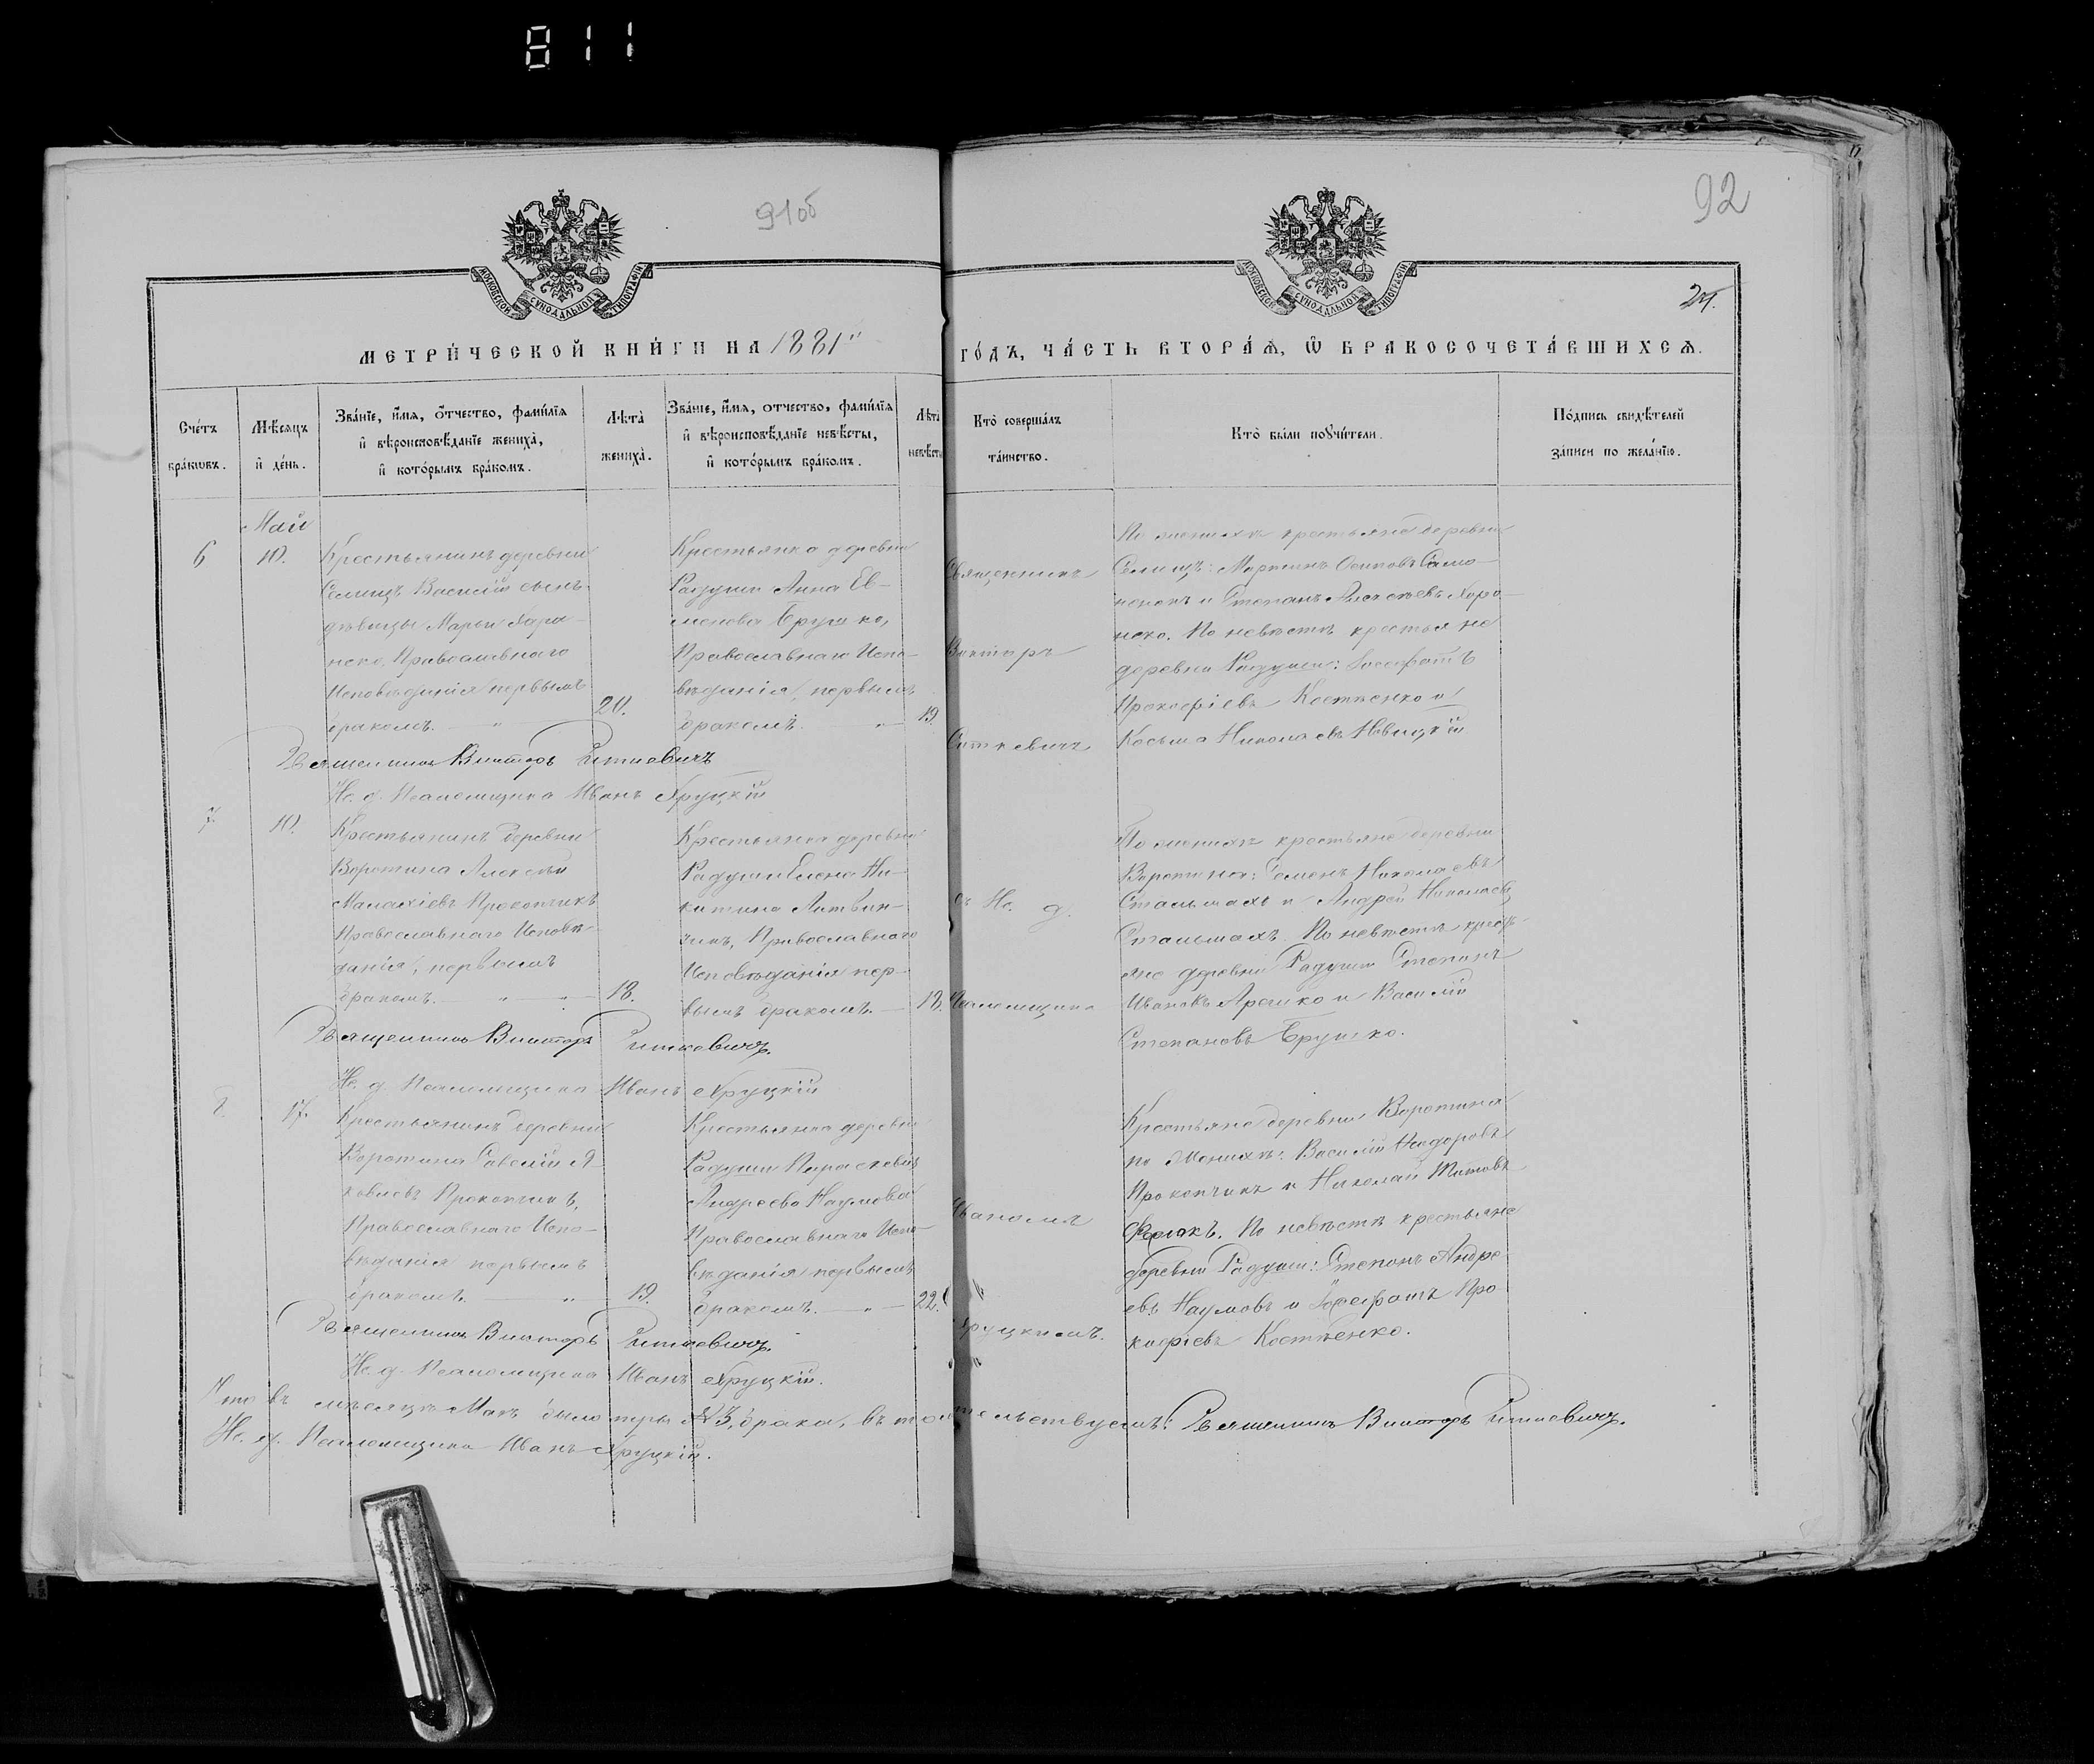 811
91об
92
МОСКОВСКОЙ СѴНОДАЛЬНОЙ ТИПОГРАФІИ
МОСКОВСКОЙ СѴНОДАЛЬНОЙ ТИПОГРАФІИ
МЕТРИ́ЧЕСКОЙ КНИ́ГИ НА 1881"
ГО́ДЪ, ЧА́СТЬ ВТОРА́Ѧ, Ѡ БРАКОСОЧЕТА́ВШИХСѦ.
Сче́тъ бра́кѡвъ.
Мѣ́сѧцъ и҆ де́нь.
Зва́нїе, и҆́мѧ, ѻ҆́тчество, фами́лїѧ
и҆ вѣроисповѣ́данїе жениха̀,
и҆ кото́рымъ бра́комъ.
Лѣта̀ жениха̀.
Зва́нїе, и҆́мѧ, отчество, фами́лїѧ
и҆ вѣроисповѣ́данїе невѣ́сты,
и҆ кото́рымъ бра́комъ.
Лѣта̀ невѣ́сты
Кто̀ соверша́лъ та́инство.
Кто̀ бы́ли порꙋчи́тели.
По́дпись свидѣ́телей
за́писи по жела́нїю.
Май
6
10.
Крестьянинъ деревни
Селищъ Василій сынъ
дѣвицы Марьи Хара-
неко, Православнаго
Исповѣданія первымъ
бракомъ.
20.
Крестьянка деревни
Радуши Анна Ев-
менова Грушко,
Православнаго Испо-
вѣданія, первымъ
бракомъ.
19.
Священникъ
Викторъ
Ситкевичъ
По женихѣ крестьяне деревни
Селищъ: Мартинъ Осиповъ
и Степанъ Алексѣевъ Хара-
неко. По невѣстѣ крестьяне
деревни Радуши: Іосафатъ
Прокофіевъ Костюенко и
Косьма Николаевъ
Священникъ Викторъ Ситкевичъ
Ис. д. Псаломщика Иванъ Хруцкій
7.
10.
Крестьянинъ деревни
Воротина Алексѣй
Малахіевъ Прокопчикъ
Православнаго Исповѣ-
данія, первымъ
бракомъ.
18.
Крестьянка деревни
Радуши Елена Ни-
китина Литвин-
чикъ, Православнаго
Исповѣданія пер-
вымъ бракомъ.
18.
съ Ис. д.
Псаломщика
По женихѣ крестьяне деревни
Воротина: Семенъ Николаевъ
Стальмахъ и Андрей Николаевъ
Стальмахъ. По невѣстѣ кресть-
яне деревни Радуши Степанъ
Ивановъ и Василій
Степановъ Грушко.
Священникъ Викторъ Ситкевичъ.
Ис. д. Псаломщика Иванъ Хруцкій
8.
17.
Крестьянинъ деревни
Воротина Савелій Я-
ковлевъ Прокопчикъ,
Православнаго Испо-
вѣданія первымъ
бракомъ.
19.
Крестьянка деревни
Радуши Параскевія
Андреева Наумова
Православнаго Испо-
вѣданія первымъ
бракомъ.
22.
Иваномъ
Хруцкимъ.
Крестьяне деревни Воротина
по Женихѣ: Василій Феодоровъ
Прокопчикъ и Николай Титовъ
По невѣстѣ крестьяне
деревни Радуши: Степанъ Андре-
евъ Наумовъ и Іосафатъ Про-
кофіевъ Костюенко.
Священникъ Викторъ Ситкевичъ.
Ис. д. Псаломщика Иванъ Хруцкій.
Что въ мѣсяцѣ Маѣ было три № 3, брака, въ томъ свидѣтельствуемъ: Священникъ Викторъ Ситкевичъ.
Ис. д. Псаломщика Иванъ Хруцкій.